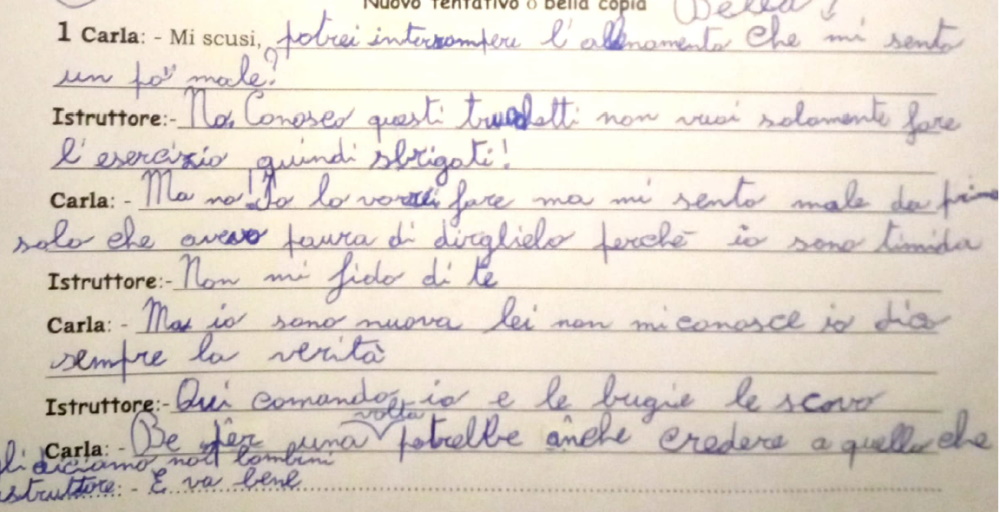 Nuovo tentativo o bella copia Bella
1 Carla: - Mi scusi, potrei interrompere l'allenamento che mi sento
un po' male?
Istruttore:- No, Conosco questi trucchetti non vuoi solamente fare
l'esercizio quindi sbrigati!
Carla: - Ma no! Io lo vorrei fare ma mi sento male da prima
solo che avevo paura di dirglielo perchè io sono timida
Istruttore:- Non mi fido di te
Carla: - Ma io sono nuova lei non mi conosce io dico
sempre la verità
Istruttore:- Qui comando io e le bugie le scovo
Carla: - Be per una volta potrebbe anche credere a quello che
gli diciamo noi bambini
Istruttore: - E va bene